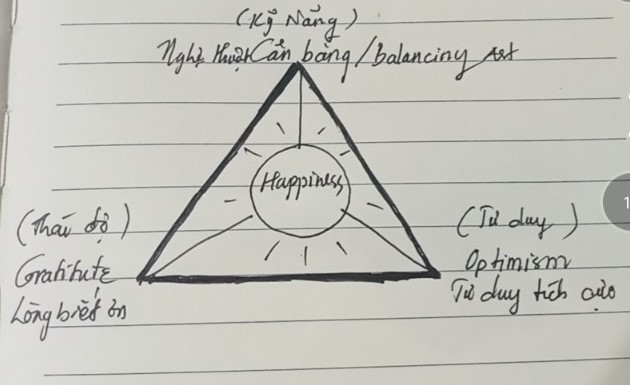 (Kỹ Năng)
Nghệ thuật Cân bằng/balancing Art
Happiness
(Thái độ)
Gratitute
Lòng biết ơn
(Tư duy)
Optimism
Tư duy tích cực
1